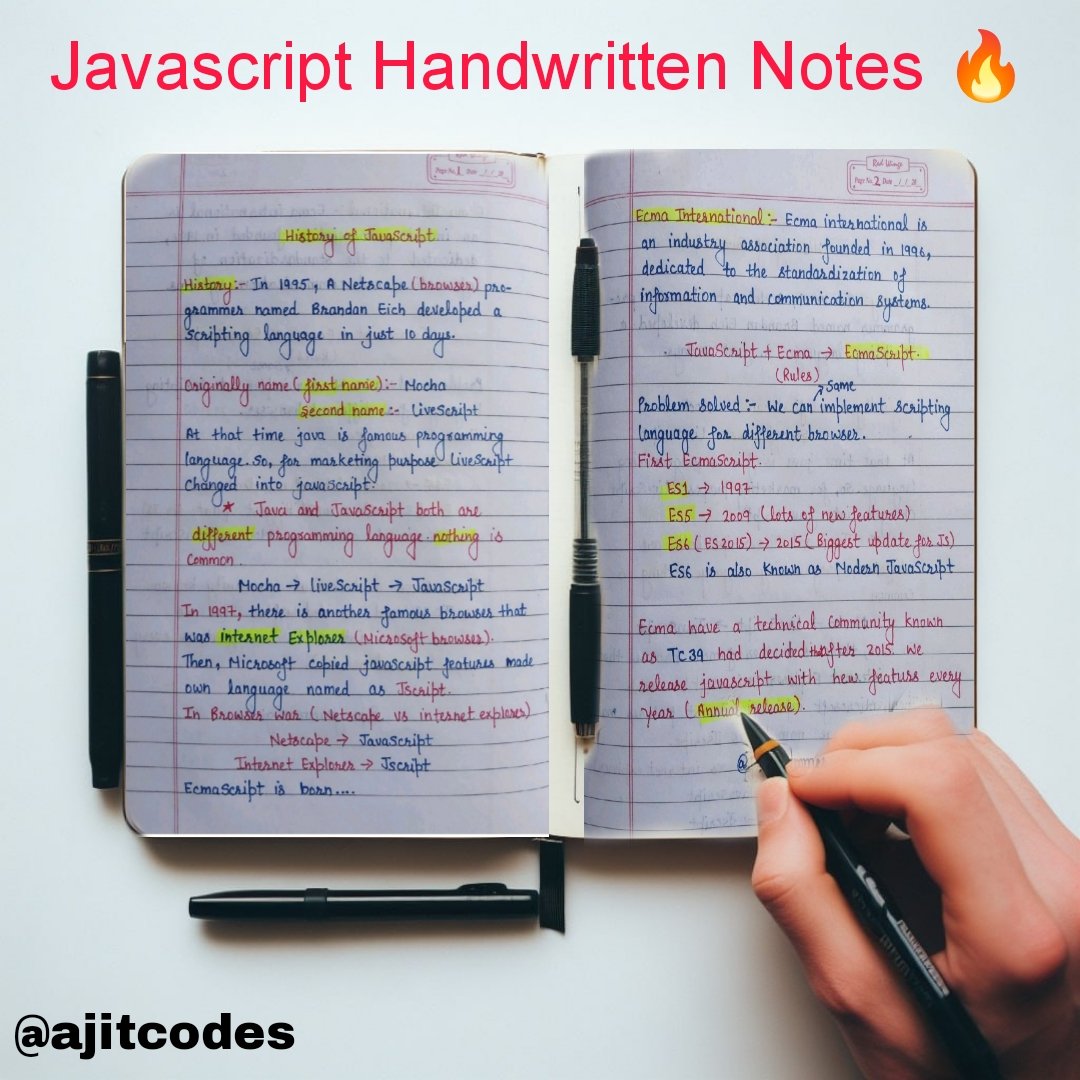 Javascript Handwritten Notes 🔥
Red Wings
Page No. 1 Date / / 20
History of JavaScript
History:- In 1995, A Netscape (browser) pro-
grammer named Brandan Eich developed a
scripting language in just 10 days.
Originally name (first name):- Mocha
Second name:- LiveScript
At that time java is famous programming
language. So, for marketing purpose LiveScript
Changed into javascript.
★ Java and JavaScript both are
different programming language. nothing is
Common.
Mocha → liveScript → JavaScript
In 1997, there is another famous browser that
was internet Explorer (Microsoft browser).
Then, Microsoft copied javascript features made
own language named as Jscript.
In Browser war (Netscape vs internet explorer)
Netscape → JavaScript
Internet Explorer → Jscript
EcmaScript is born....
Red Wings
Page No. 2 Date / / 20
Ecma International:- Ecma international is
an industry association founded in 1996,
dedicated to the standardization of
information and communication systems.
JavaScript + Ecma → EcmaScript.
(Rules)
same
Problem solved:- We can implement scripting
language for different browser.
First EcmaScript.
ES1 → 1997
ES5 → 2009 (lots of new features)
ES6 (ES2015) → 2015 (Biggest update for JS)
ES6 is also Known as Modern JavaScript
Ecma have a technical community known
as TC39 had decided after 2015 we
release javascript with new featurs every
year (Annual release).
@
@ajitcodes